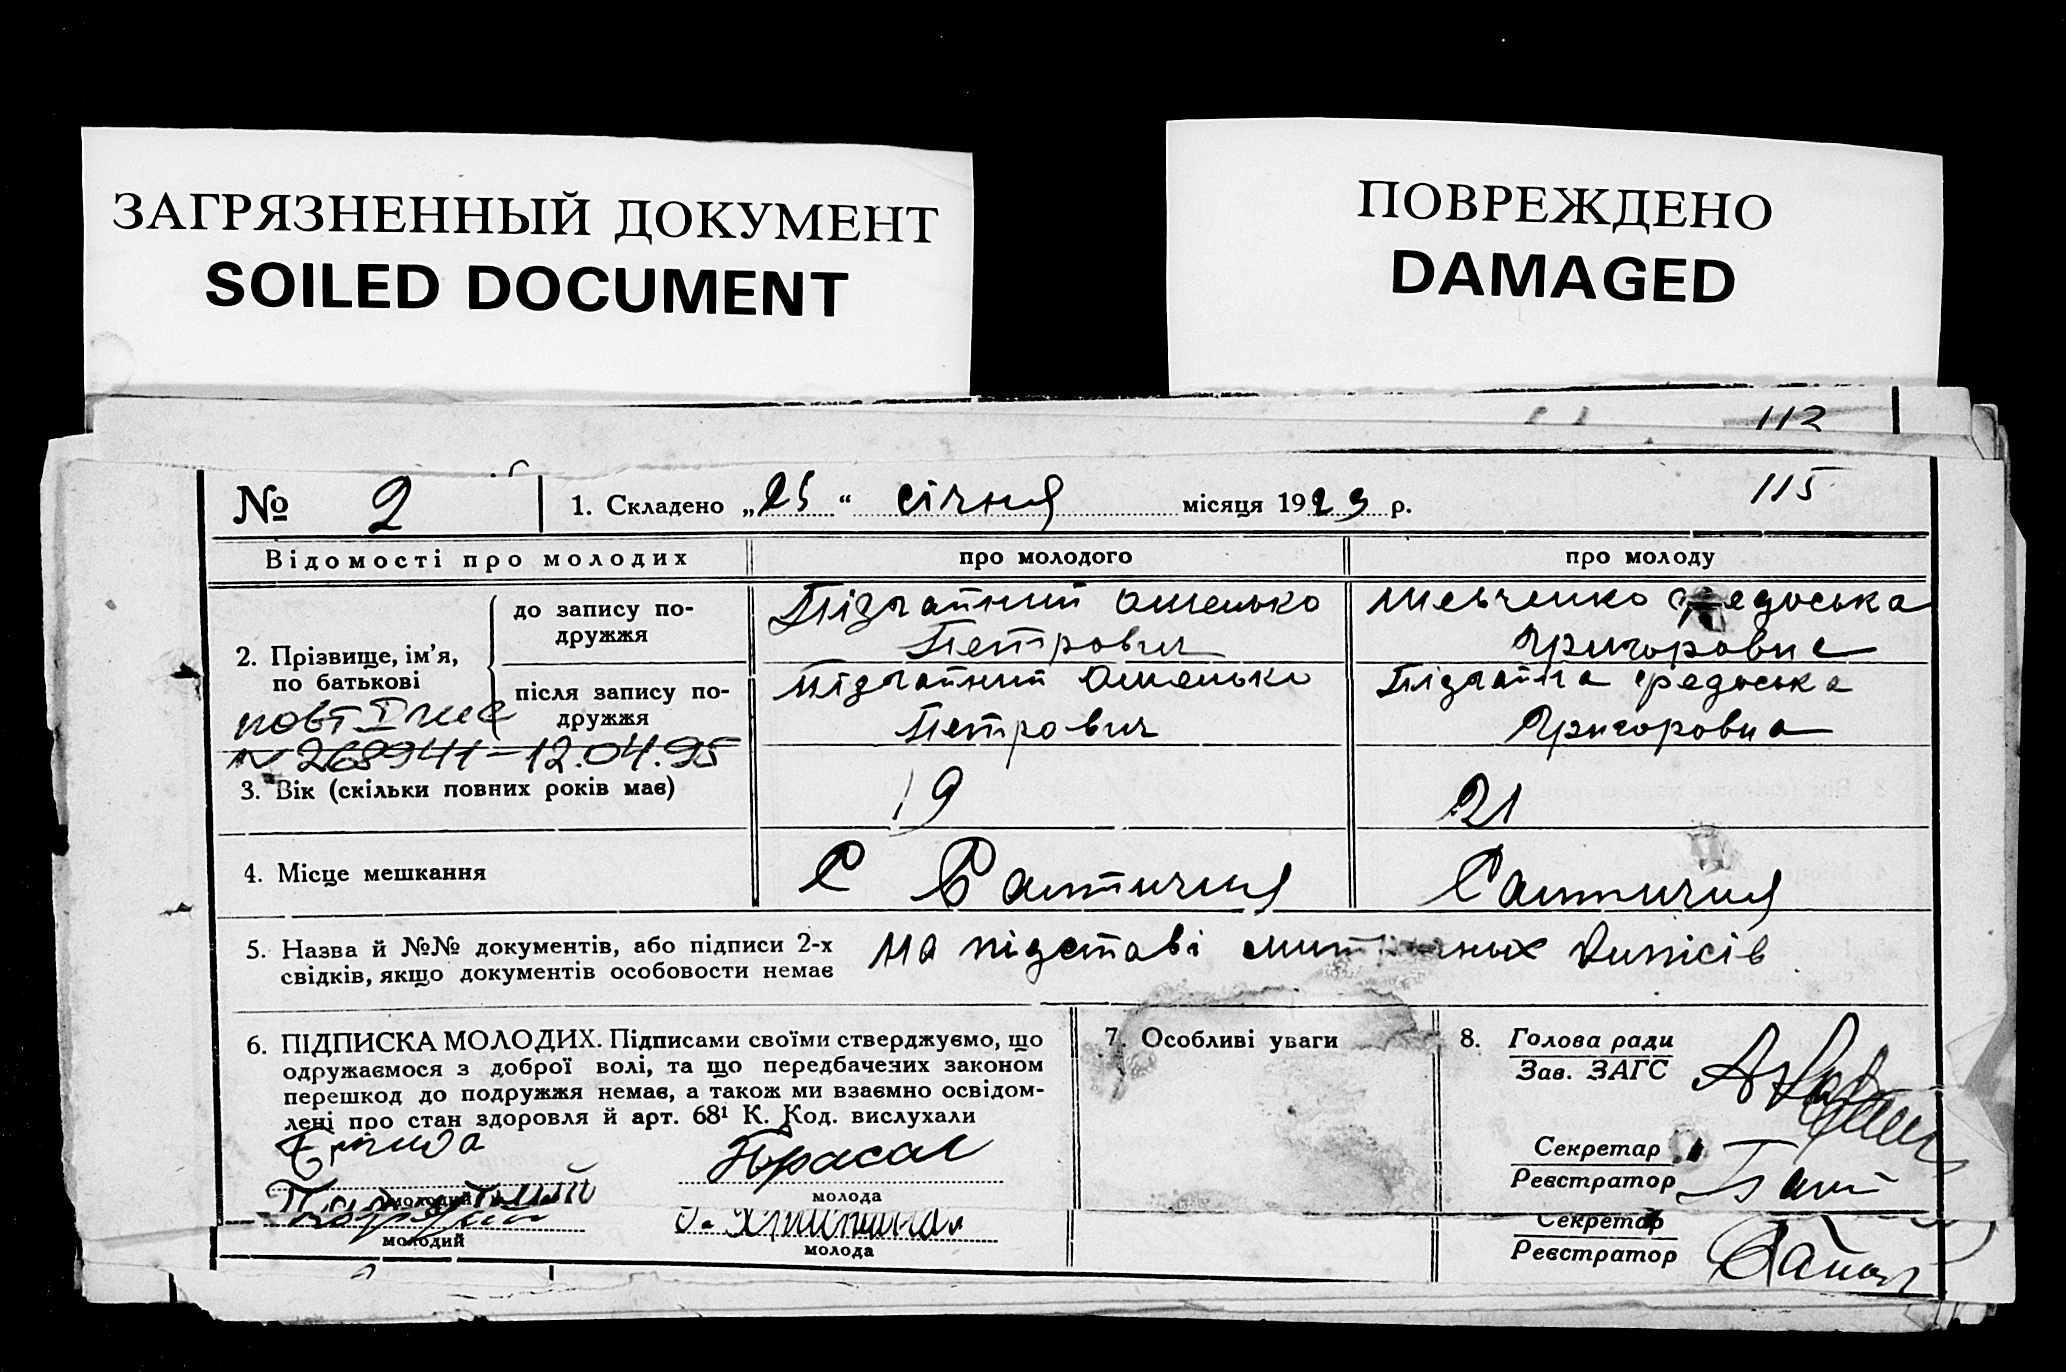 ЗАГРЯЗНЕННЫЙ ДОКУМЕНТ
SOILED DOCUMENT
ПОВРЕЖДЕНО
DAMAGED
112
115
№ 2
1. Складено „25“ січня місяця 1929 р.
Відомості про молодих
про молодого
про молоду
2. Прізвище, ім’я, по батькові
до запису подружжя
Підгайний Омелько
Петрович
Шевченко Федоська
Григоровна
після запису подружжя
Підгайний Омелько
Петрович
Підгайна Федоська
Григоровна
повт
№ 268941 - 12.04.95
3. Вік (скільки повних років має)
19
21
4. Місце мешкання
С
5. Назва й №№ документів, або підписи 2-х
свідків, якщо документів особовости немає
на підставі
6. ПІДПИСКА МОЛОДИХ. Підписами своїми стверджуємо, що
одружаємося з доброї волі, та що передбачених законом
перешкод до подружжя немає, а також ми взаємно освідом-
лені про стан здоровля й арт. 68¹ К. Код. вислухали
молодий
молода
молодий
молода
7. Особливі уваги
8. Голова ради
Зав. ЗАГС
Секретар
Реєстратор
Секретар
Реєстратор